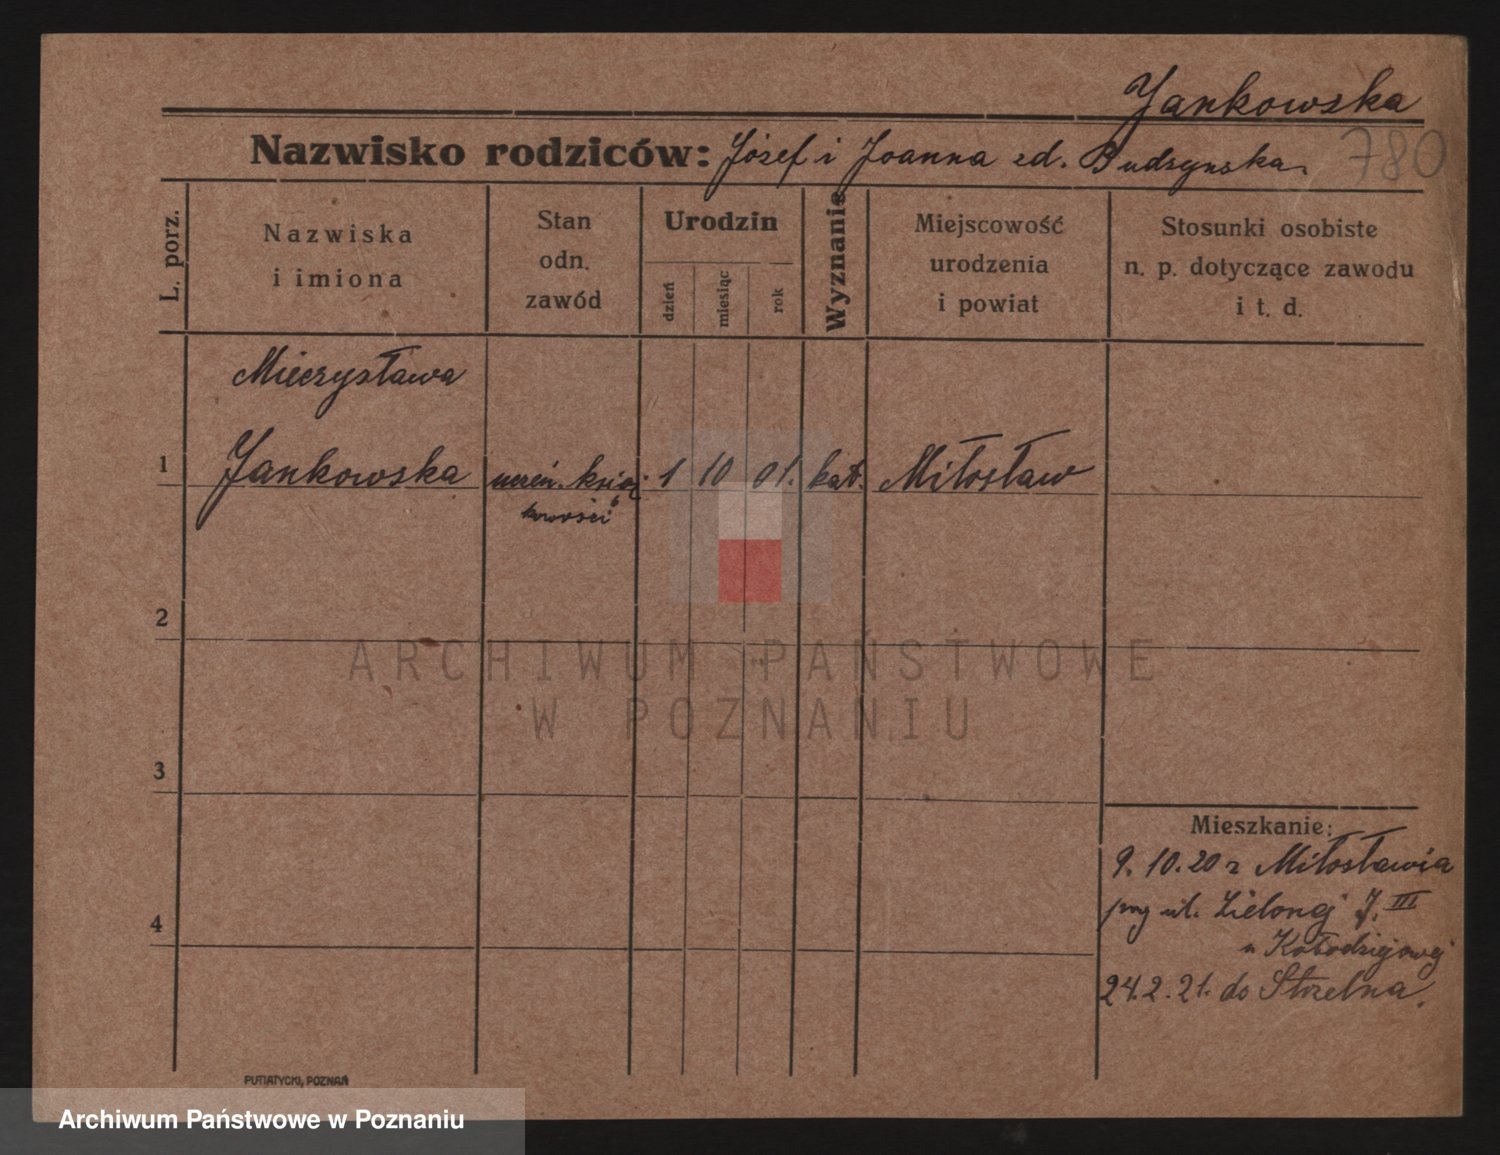 Jankowska
Nazwisko rodziców: Józef i Joanna zd. Budzynska.
780
L. porz.
Nazwiska
i imiona
Stan
odn.
zawód
Urodzin
dzień
miesiąc
rok
Wyznanie
Miejscowość
urodzenia
i powiat
Stosunki osobiste
n. p. dotyczące zawodu
i t. d.
Mieczysława
1 Jankowska uczeń. księg 1 10 01. kat. Miłosław
kowości
2
3
4
ARCHIWUM PAŃSTWOWE
W POZNANIU
Mieszkanie:
9. 10. 20 z Miłosławia
przy ul. Zielonej 7. III
u Kołodziejowej
24.2.21. do Strzelna.
PUTIATYCKI, POZNAŃ
Archiwum Państwowe w Poznaniu